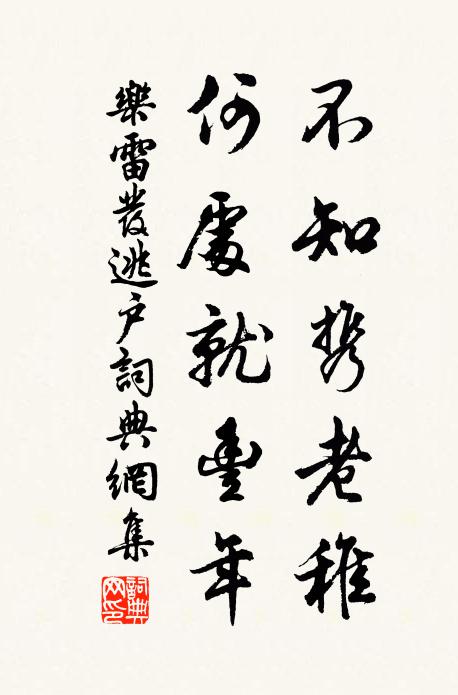 不知携老稚
何處就豐年
樂雷發逃户詞典網集
詞典網印